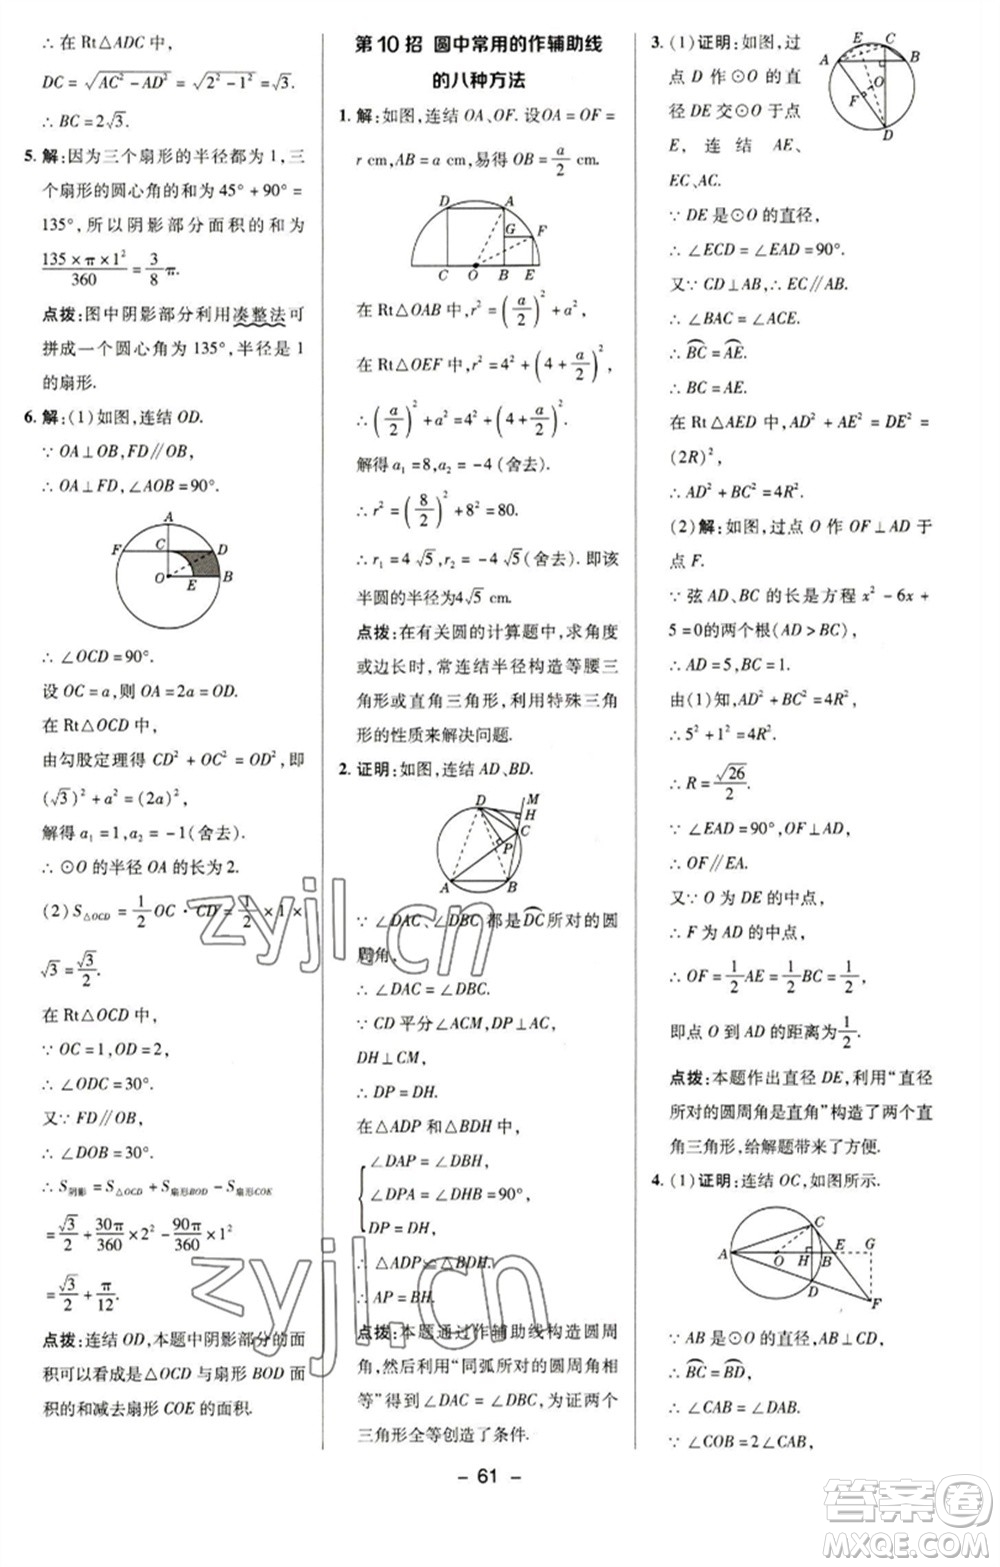 ∴ 在 Rt△ADC 中,
DC = √(AC² − AD²) = √(2² − 1²) = √3.
∴ BC = 2√3.
5. 解:因为三个扇形的半径都为 1,三
个扇形的圆心角的和为 45° + 90° =
135°,所以阴影部分面积的和为
(135 × π × 1²)/360 = 3/8 π.
点拨:图中阴影部分利用凑整法可
拼成一个圆心角为 135°,半径是 1
的扇形.
6. 解:(1)如图,连结 OD.
∵ OA⊥OB,FD∥OB,
∴ OA⊥FD,∠AOB = 90°.
A
F C D
O E B
∴ ∠OCD = 90°.
设 OC = a,则 OA = 2a = OD.
在 Rt△OCD 中,
由勾股定理得 CD² + OC² = OD²,即
(√3)² + a² = (2a)²,
解得 a₁ = 1,a₂ = −1(舍去).
∴ ⊙O 的半径 OA 的长为 2.
(2) S△OCD = 1/2 OC · CD = 1/2 × 1 ×
√3 = √3/2.
在 Rt△OCD 中,
∵ OC = 1,OD = 2,
∴ ∠ODC = 30°.
又∵ FD∥OB,
∴ ∠DOB = 30°.
∴ S阴影 = S△OCD + S扇形BOD − S扇形COE
= √3/2 + 30π/360 × 2² − 90π/360 × 1²
= √3/2 + π/12.
点拨:连结 OD,本题中阴影部分的面
积可以看成是△OCD 与扇形 BOD 面
积的和减去扇形 COE 的面积.
第 10 招 圆中常用的作辅助线
的八种方法
1. 解:如图,连结 OA、OF. 设 OA = OF =
r cm,AB = a cm,易得 OB = a/2 cm.
D A
G F
C O B E
在 Rt△OAB 中,r² = (a/2)² + a²,
在 Rt△OEF 中,r² = 4² + (4 + a/2)²,
∴ (a/2)² + a² = 4² + (4 + a/2)².
解得 a₁ = 8,a₂ = −4(舍去).
∴ r² = (8/2)² + 8² = 80.
∴ r₁ = 4√5,r₂ = −4√5(舍去). 即该
半圆的半径为4√5 cm.
点拨:在有关圆的计算题中,求角度
或边长时,常连结半径构造等腰三
角形或直角三角形,利用特殊三角
形的性质来解决问题.
2. 证明:如图,连结 AD、BD.
D M
H
C
P
A B
∵ ∠DAC、∠DBC 都是DC所对的圆
周角,
∴ ∠DAC = ∠DBC.
∵ CD 平分∠ACM,DP⊥AC,
DH⊥CM,
∴ DP = DH.
在△ADP 和△BDH 中,
∠DAP = ∠DBH,
∠DPA = ∠DHB = 90°,
DP = DH,
∴ △ADP≌△BDH.
∴ AP = BH.
点拨:本题通过作辅助线构造圆周
角,然后利用“同弧所对的圆周角相
等”得到∠DAC = ∠DBC,为证两个
三角形全等创造了条件.
3. (1)证明:如图,过
点 D 作 ⊙O 的直
径 DE 交 ⊙O 于点
E,连结 AE、
EC、AC.
E C
A B
O
F
D
∵ DE 是⊙O 的直径,
∴ ∠ECD = ∠EAD = 90°.
又∵ CD⊥AB,∴ EC∥AB.
∴ ∠BAC = ∠ACE.
∴ BC = AE.
∴ BC = AE.
在 Rt△AED 中,AD² + AE² = DE² =
(2R)²,
∴ AD² + BC² = 4R².
(2)解:如图,过点 O 作 OF⊥AD 于
点 F.
∵ 弦 AD、BC 的长是方程 x² − 6x +
5 = 0的两个根(AD > BC),
∴ AD = 5,BC = 1.
由(1)知,AD² + BC² = 4R²,
∴ 5² + 1² = 4R².
∴ R = √26/2.
∵ ∠EAD = 90°,OF⊥AD,
∴ OF∥EA.
又∵ O 为 DE 的中点,
∴ F 为 AD 的中点,
∴ OF = 1/2 AE = 1/2 BC = 1/2,
即点 O 到 AD 的距离为1/2.
点拨:本题作出直径 DE,利用“直径
所对的圆周角是直角”构造了两个直
角三角形,给解题带来了方便.
4. (1)证明:连结 OC,如图所示.
C
A O H B E G
D F
∵ AB 是⊙O 的直径,CD⊥AB,
∴ BC = BD,
∴ ∠CAB = ∠BAD.
∵ ∠COB = 2∠CAB,
– 61 –
zyjl.cn
zyjl.cn
答案卷
MXQE.COM